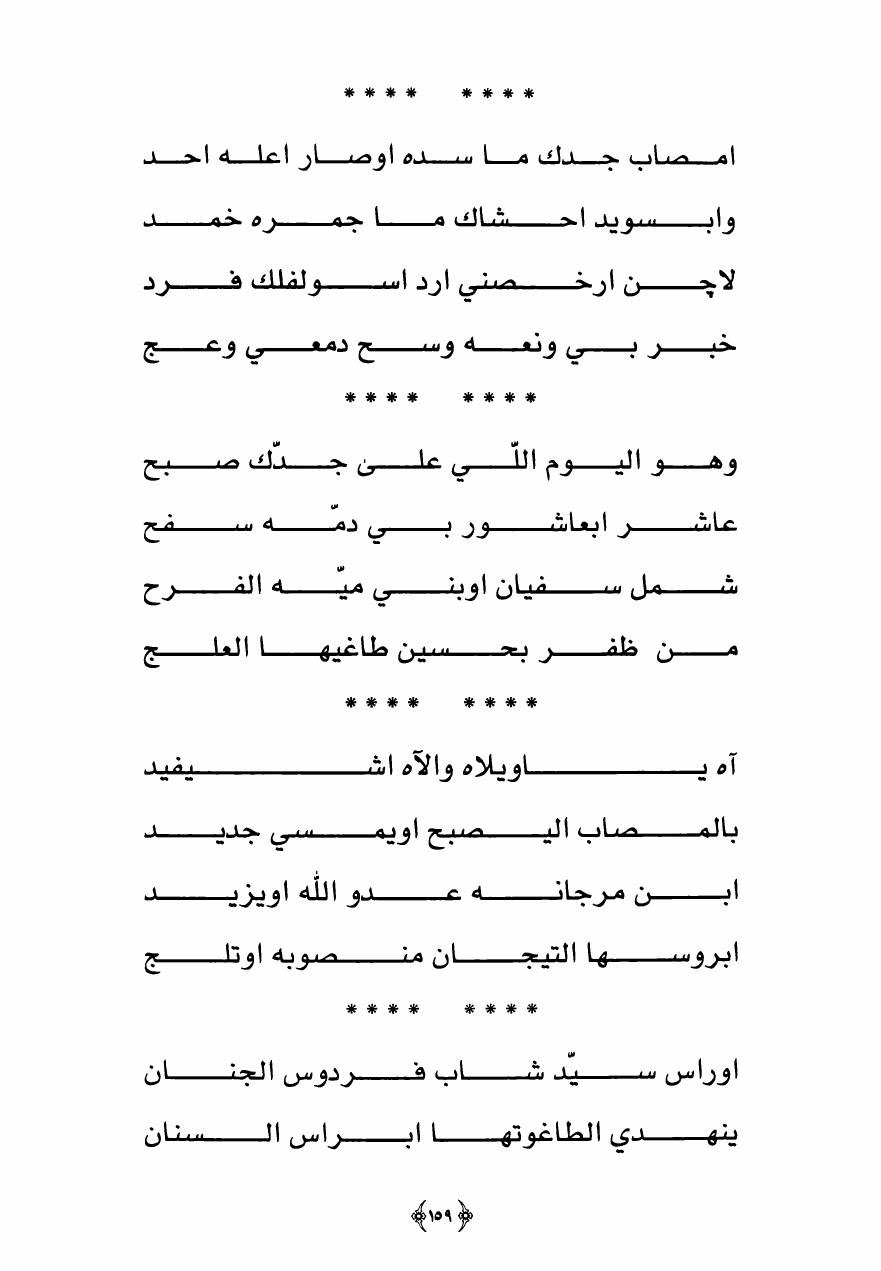 **** ****
امصاب جدك ما سده اوصار اعله احد
وابسويد احشاك ما جمره خمد
لاچن ارخصني ارد اسولفلك فرد
خبر بي ونعه وسح دمعي وعج
**** ****
وهو اليوم اللّي على جدّك صبح
عاشر ابعاشور بي دمّه سفح
شمل سفيان اوبني ميّه الفرح
من ظفر بحسين طاغيها العلج
**** ****
آه ياويلاه والآه اشيفيد
بالمصاب اليصبح اويمسي جديد
ابن مرجانه عدو الله اويزيد
ابروسها التيجان منصوبه اوتلج
**** ****
اوراس سيّد شاب فردوس الجنان
ينهدي الطاغوتها ابراس السنان
﴿١٥٩﴾